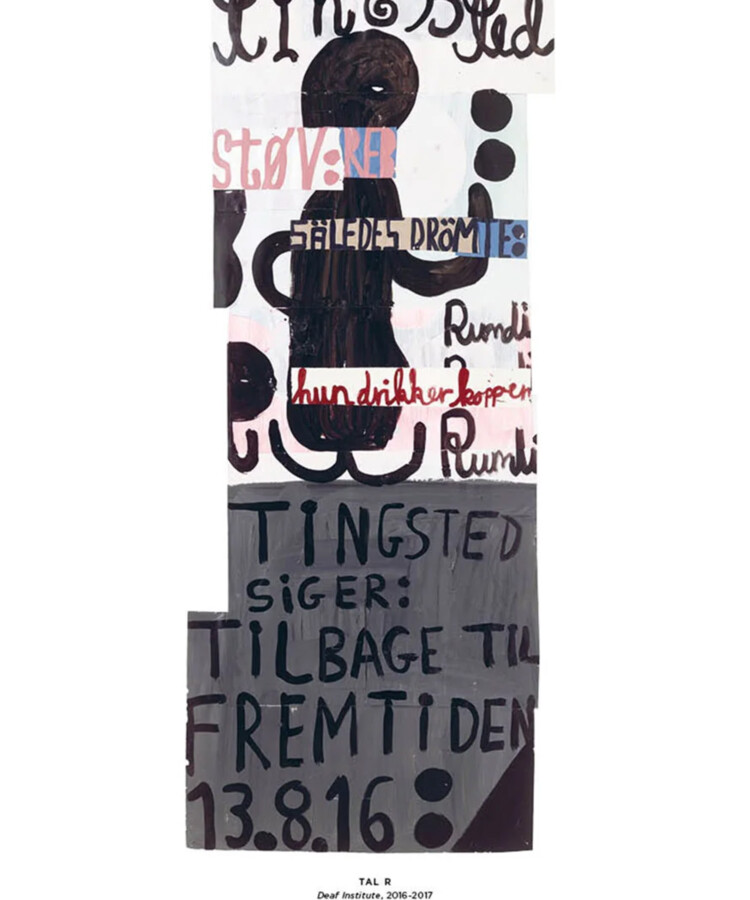 TINGSted
StØV:RER
SÄLEDES DRÖMTE:
Rumdi
hun drikker koppen
Rumdi
TINGSTED
SiGER:
TiLBAGE TIL
FREMTiDEN
13.8.16:
TAL R
Deaf Institute, 2016-2017